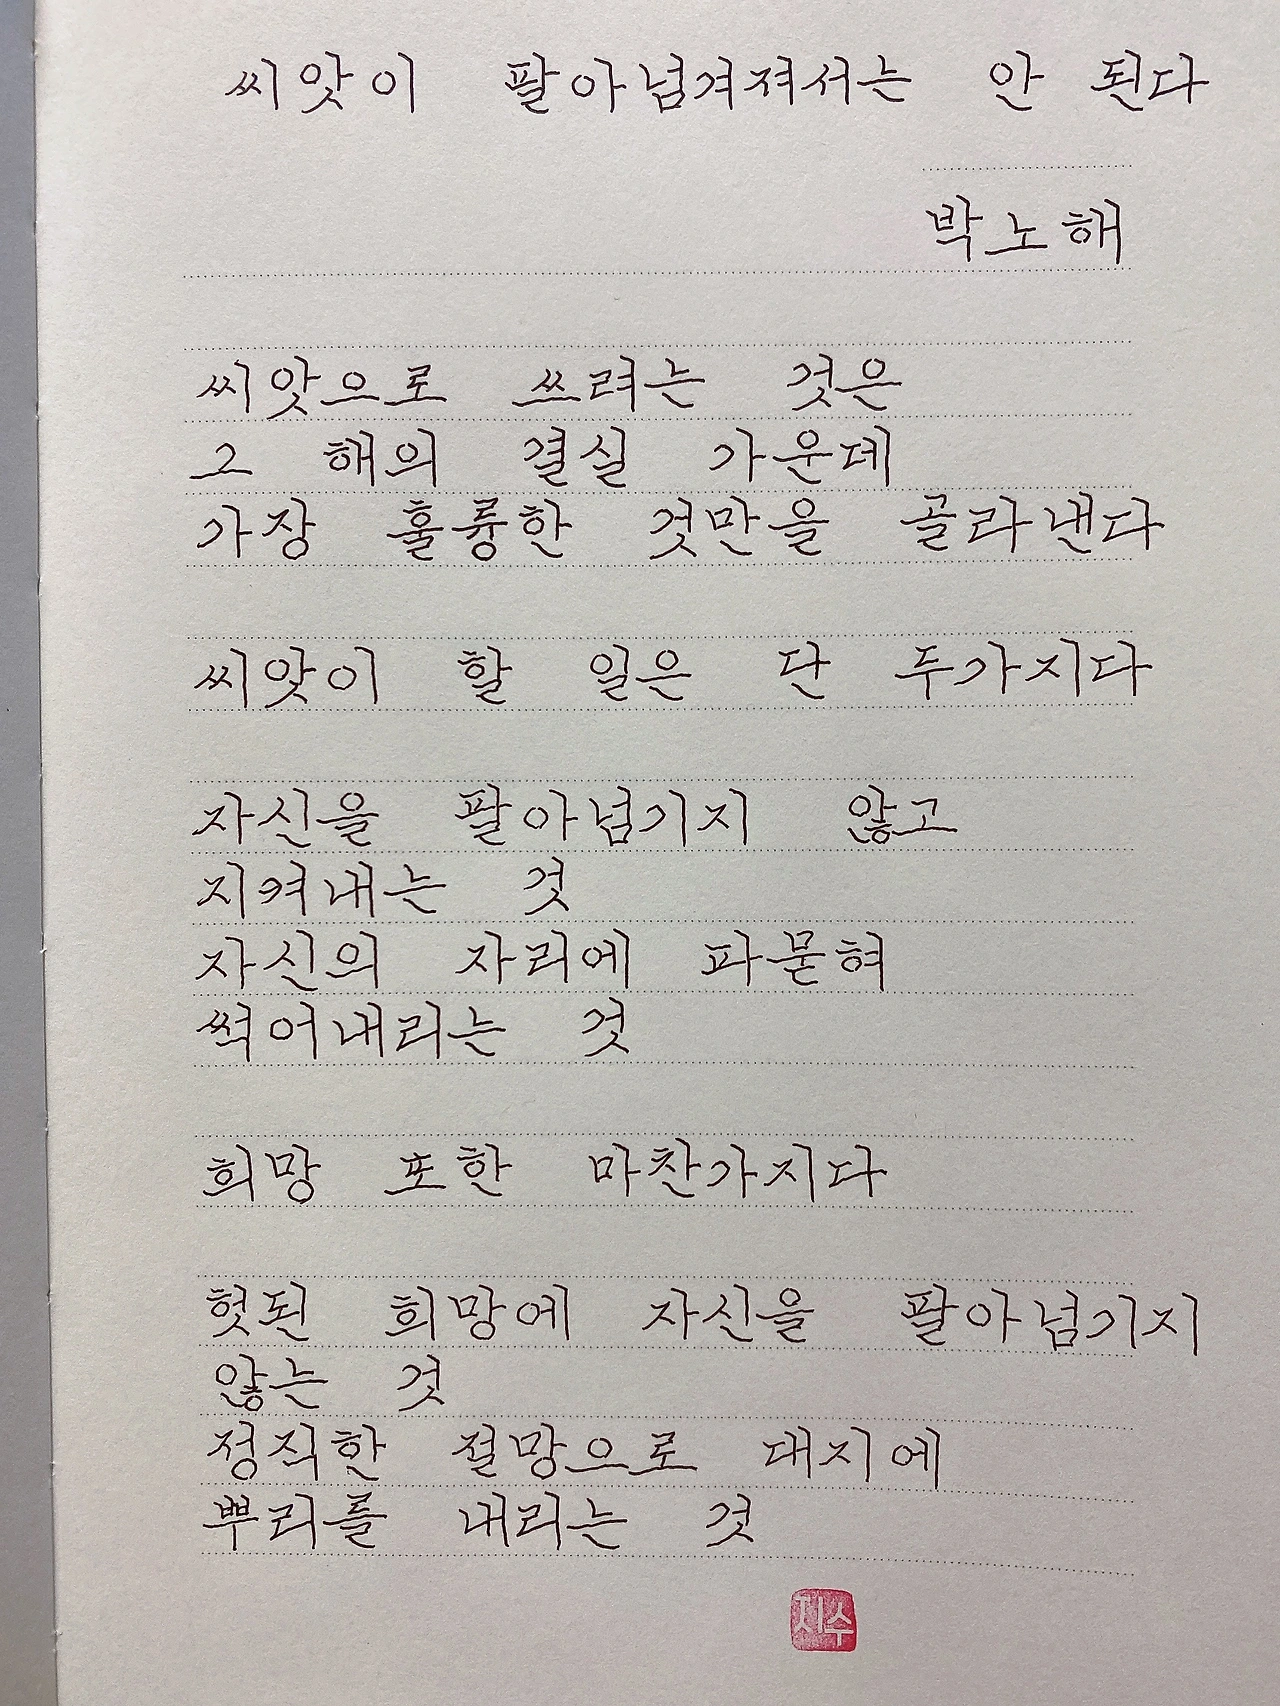 씨앗이 팔아넘겨져서는 안 된다
박노해
씨앗으로 쓰려는 것은
그 해의 결실 가운데
가장 훌륭한 것만을 골라낸다
씨앗이 할 일은 단 두가지다
자신을 팔아넘기지 않고
지켜내는 것
자신의 자리에 파묻혀
썩어내리는 것
희망 또한 마찬가지다
헛된 희망에 자신을 팔아넘기지
않는 것
정직한 절망으로 대지에
뿌리를 내리는 것
지수